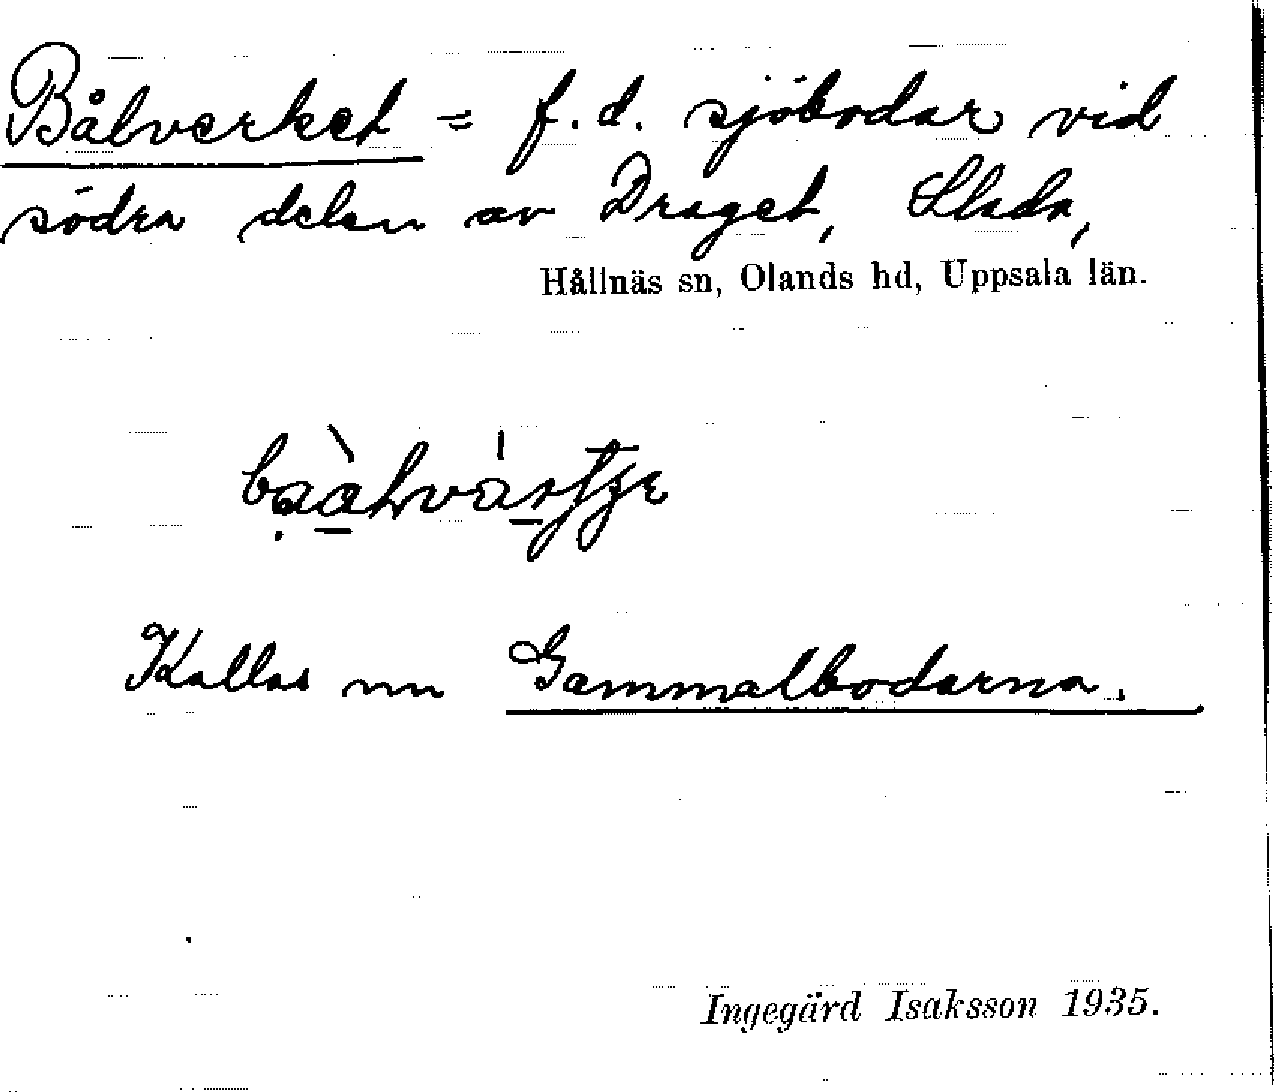 Bålverket = f.d. sjöbodar vid
södra delen av Draget, Slada,
Hållnäs sn, Olands hd, Uppsala län.
Kallas nu Gammalbodarna.
Ingegärd Isaksson 1935.